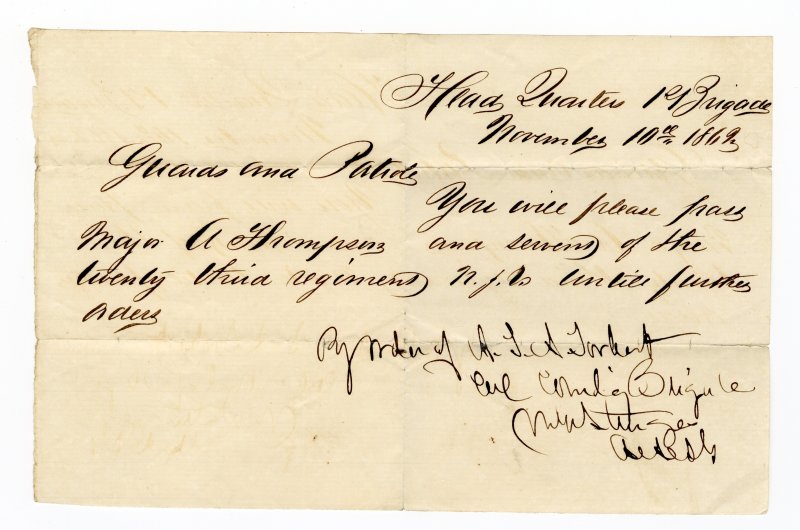 Head Quarters 1st Brigade
November 10th 1862
Guards and Patrols
You will please pass
Major A Thompson and servent of the
twenty third regiment N.J.V. untill further
orders
By order of A. T. A. Torbert
Col Comdg Brigade